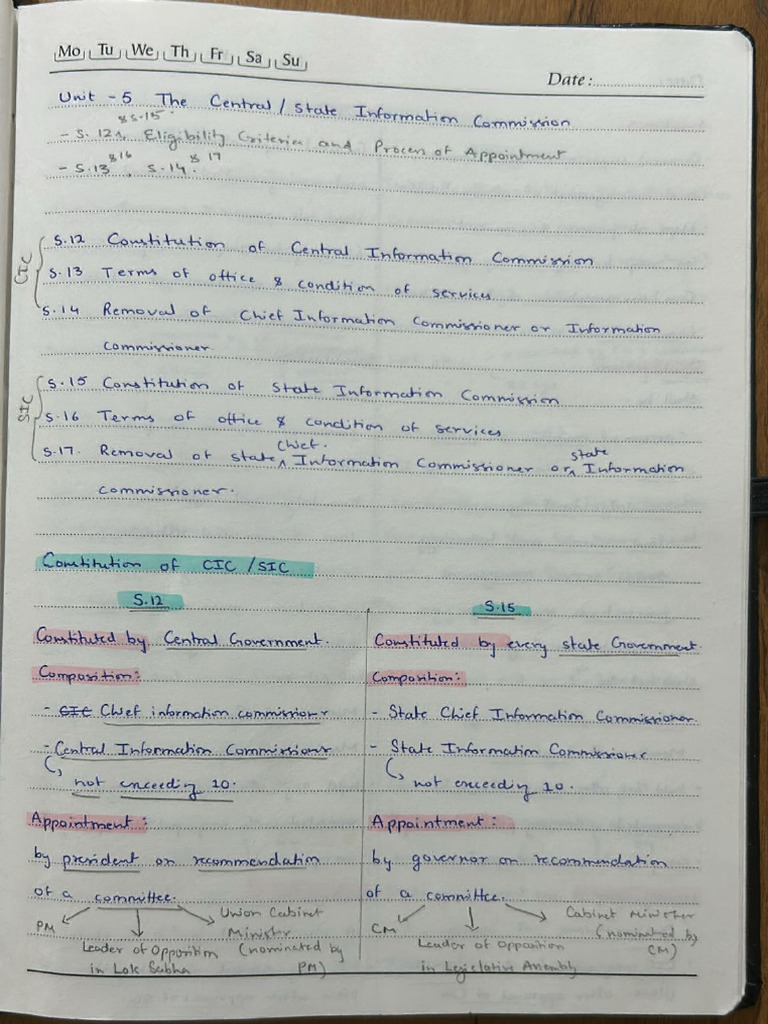 Mo Tu We Th Fr Sa Su
Date:
Unit - 5 The Central / State Information Commission
& S.15.
- S. 12, Eligibility Criteria and Process of Appointment
& 16 & 17
- S.13, S.14.
CIC
S.12 Constitution of Central Information Commission
S.13 Terms of office & condition of services
S.14 Removal of Chief Information Commissioner or Information
commissioner.
SIC
S.15 Constitution of State Information Commission
S.16 Terms of office & condition of services
chief. state
S.17. Removal of state ^ Information Commissioner or ^ Information
commissioner.
Constitution of CIC / SIC
S.12
Constituted by Central Government.
Composition:
- CIC Chief information commissioner
- Central Information Commissions
not exceeding 10.
Appointment:
by president on recommendation
of a committee.
PM
Leader of Opposition
in Lok Sabha
Union Cabinet
Minister
(nominated by
PM)
S.15
Constituted by every state Government.
Composition:
- State Chief Information Commissioner
- State Information Commissioner
not exceeding 10.
Appointment:
by governor on recommendation
of a committee.
CM
Leader of Opposition
in Legislative Assembly
Cabinet Minister
(nominated by
CM)